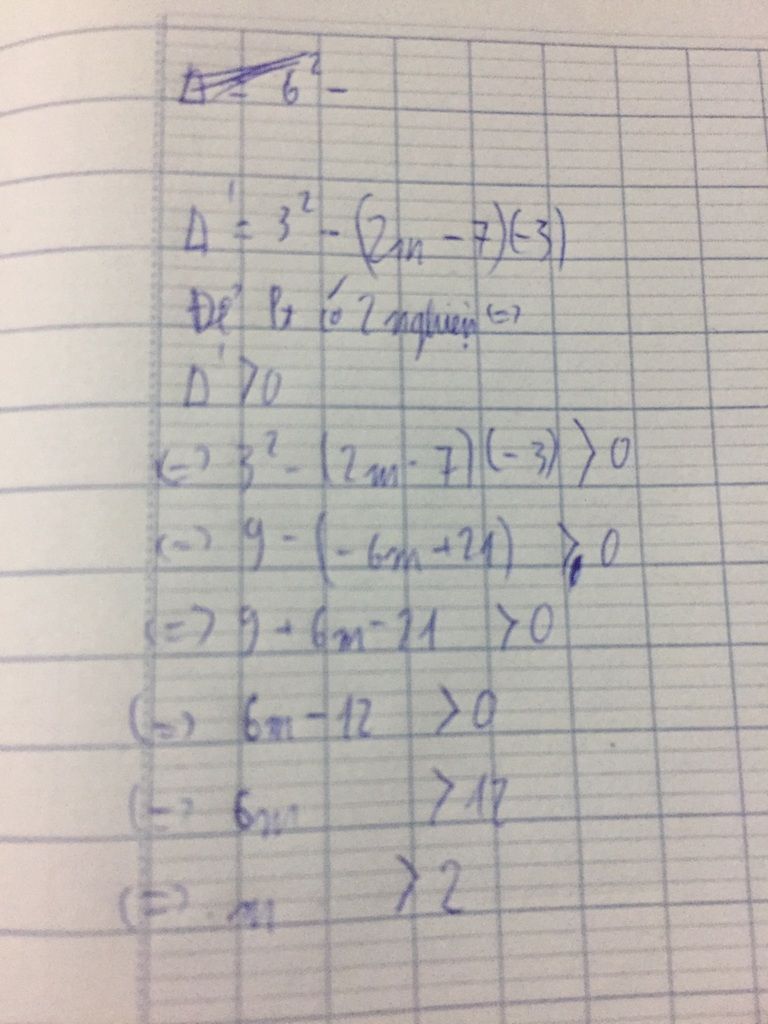 Δ = 6² -
Δ' = 3² - (2m - 7)(-3)
Để Pt có 2 nghiệm <=>
Δ' > 0
<=> 3² - (2m - 7)(-3) > 0
<=> 9 - (-6m + 21) > 0
<=> 9 + 6m - 21 > 0
<=> 6m - 12 > 0
<=> 6m > 12
<=> m > 2